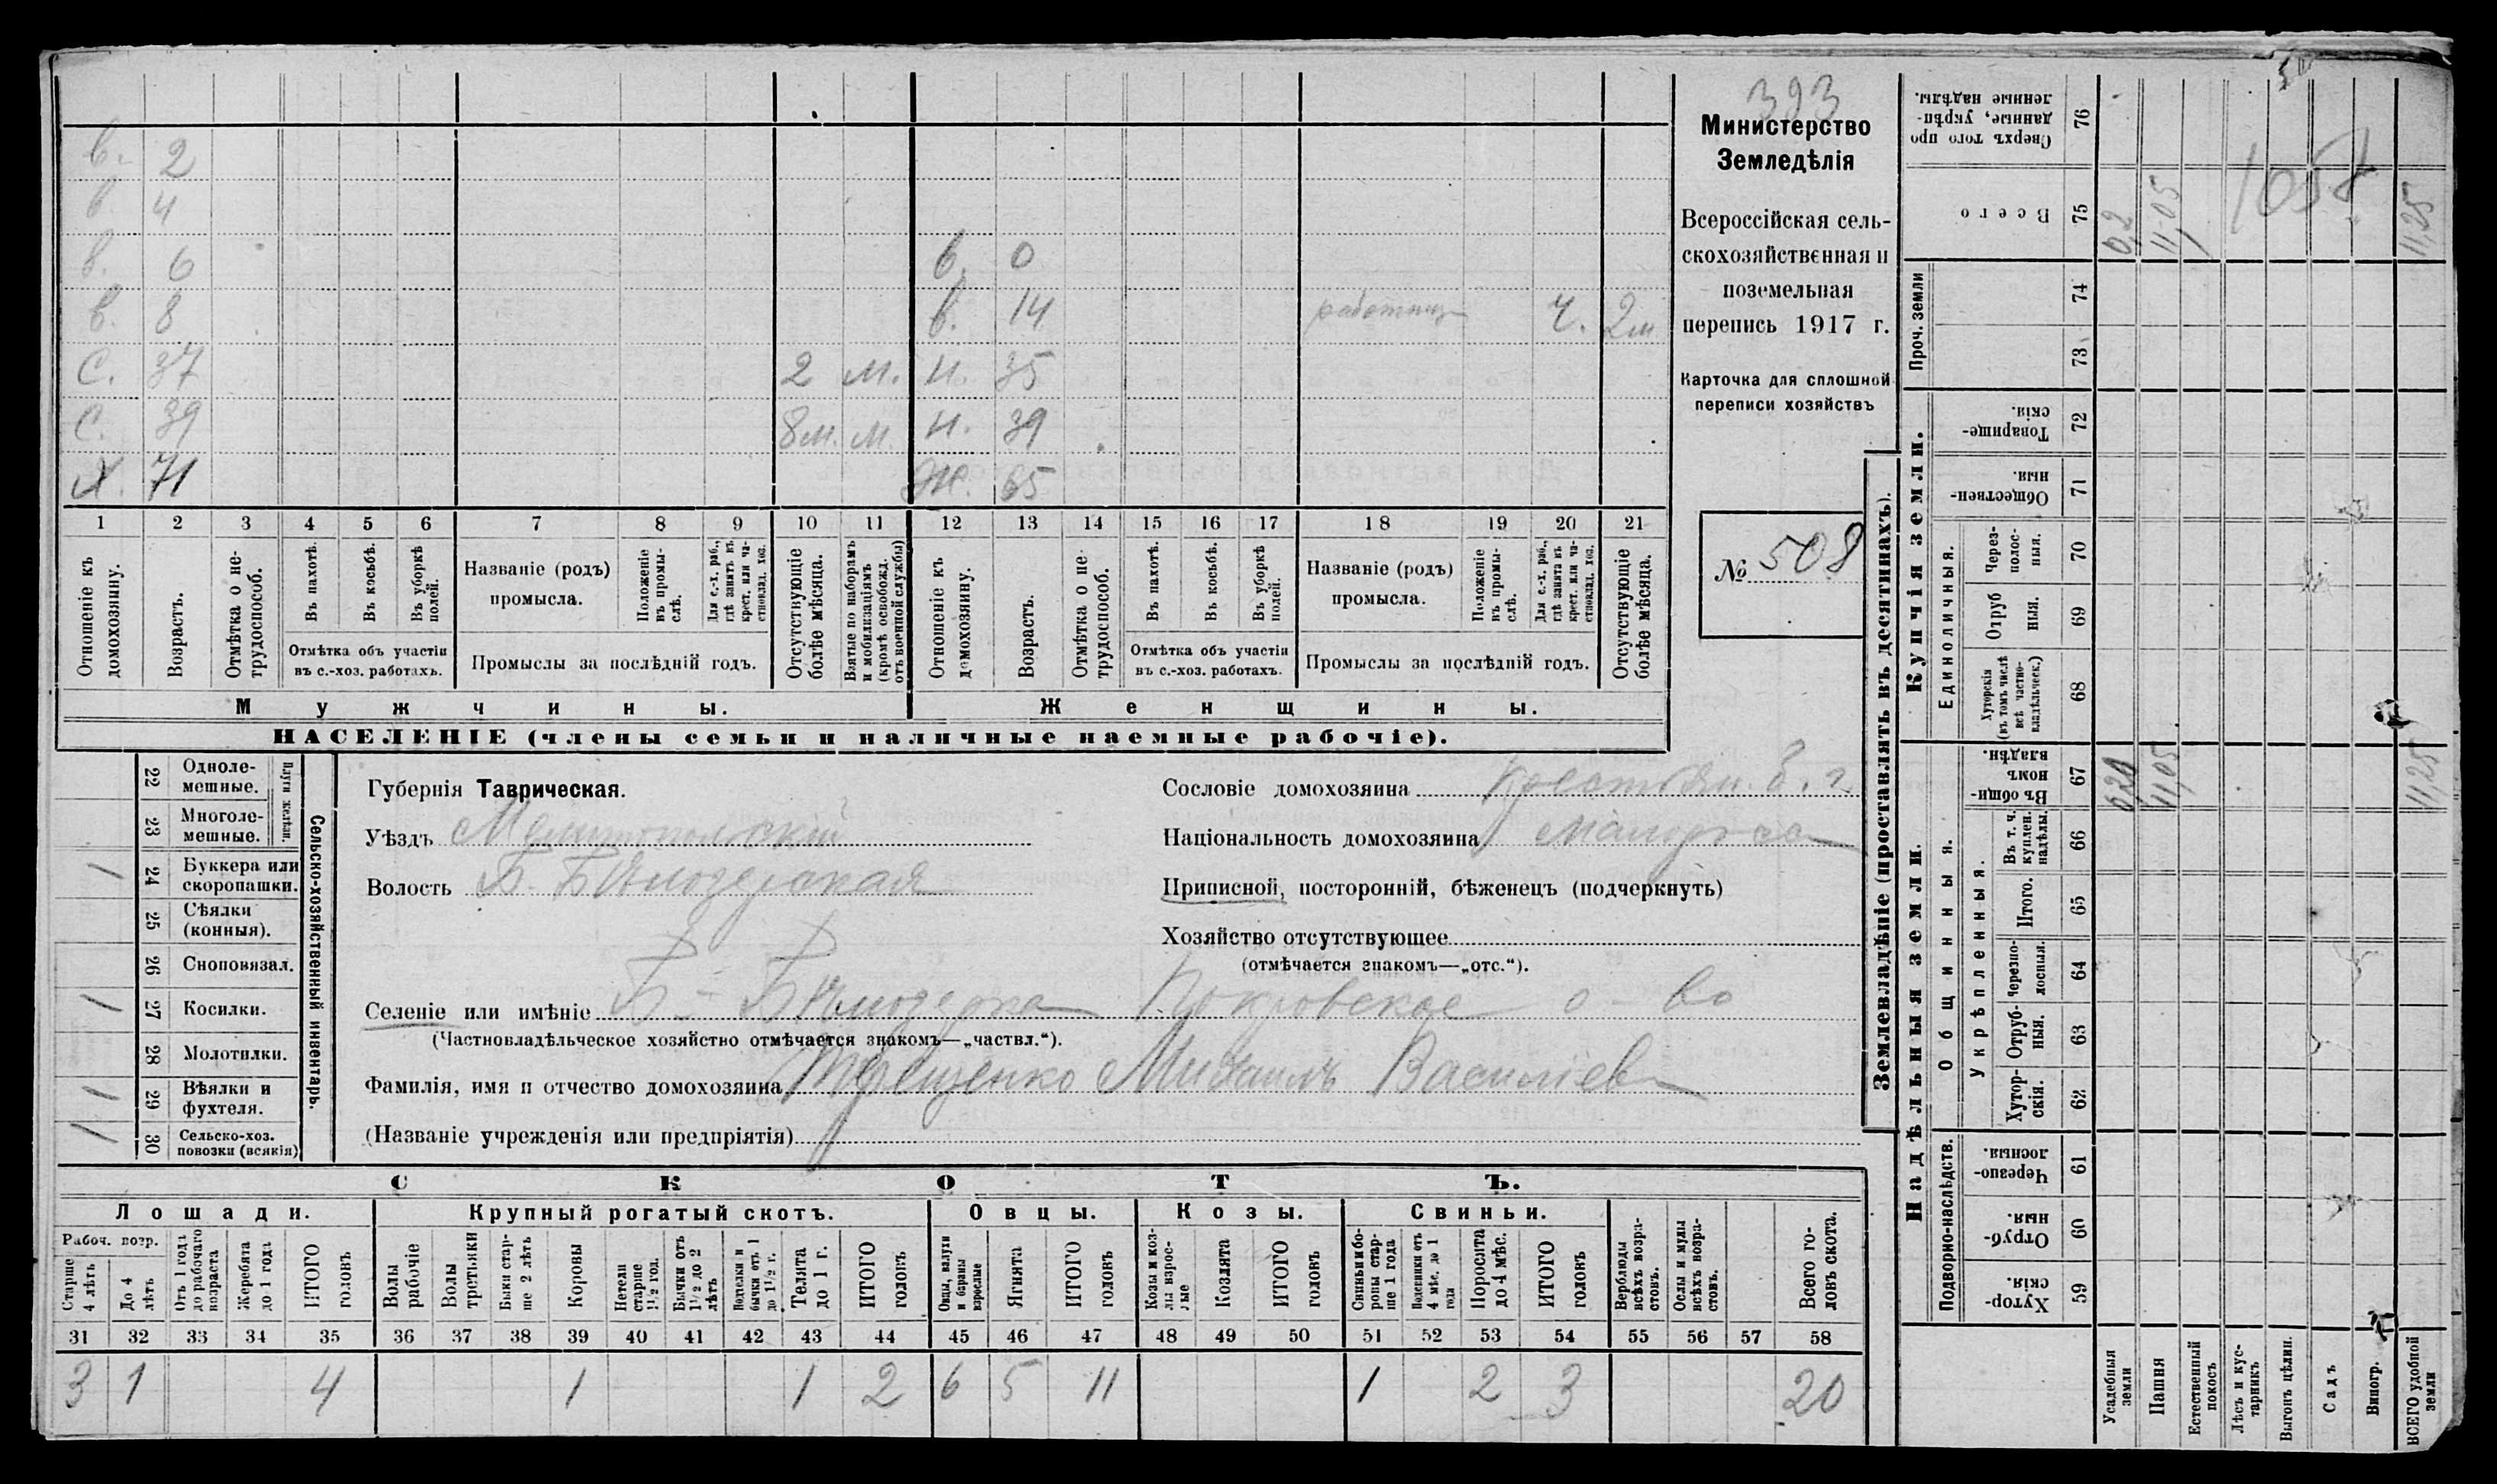 393
Министерство
Земледѣлія
Всероссійская сель-
скохозяйственная и
поземельная
перепись 1917 г.
Карточка для сплошной
переписи хозяйствъ
№ 508
в. 2
в. 4
в. 6 в. 0
в. 8 в. 14 работниц Ч. 2м
С. 37 2 м. н. 35
С. 39 8м. м. н. 39
Х. 71 Ж. 65
1 2 3 4 5 6 7 8 9 10 11 12 13 14 15 16 17 18 19 20 21
Отношеніе къ домохозяину.
Возрастъ.
Отмѣтка о не-трудоспособ.
Въ пахотѣ.
Въ косьбѣ.
Въ уборкѣ полей.
Отмѣтка объ участіи
въ с.-хоз. работахъ.
Названіе (родъ)
промысла.
Положеніе въ промы-слѣ.
Для с.-х. раб., гдѣ занятъ въ крест. или ча-стновлад. хоз.
Промыслы за послѣдній годъ.
Отсутствующіе болѣе мѣсяца.
Взятые по наборамъ и мобилизаціямъ (кромѣ освобожд. отъ военной службы)
Отношеніе къ домохозяину.
Возрастъ.
Отмѣтка о не-трудоспособ.
Въ пахотѣ.
Въ косьбѣ.
Въ уборкѣ полей.
Отмѣтка объ участіи
въ с.-хоз. работахъ.
Названіе (родъ)
промысла.
Положеніе въ промы-слѣ.
Для с.-х. раб., гдѣ занята въ крест. или ча-стновлад. хоз.
Промыслы за послѣдній годъ.
Отсутствующіе болѣе мѣсяца.
Мужчины. Женщины.
НАСЕЛЕНІЕ (члены семьи и наличные наемные рабочіе).
Сельско-хозяйственный инвентарь.
Плуги желѣзн.
22 Одноле-мешные.
23 Многоле-мешные.
1 24 Буккера или скоропашки.
25 Сѣялки (конныя).
26 Сноповязал.
1 27 Косилки.
28 Молотилки.
1 29 Вѣялки и фухтеля.
1 30 Сельско-хоз. повозки (всякія)
Губернія Таврическая.
Уѣздъ Мелитопольскій
Волость Б. Бѣлозерская
Сословіе домохозяина крестьян. б. г.
Національность домохозяина малоросс
Приписной, посторонній, бѣженецъ (подчеркнуть)
Хозяйство отсутствующее
(отмѣчается знакомъ—„отс.“).
Селеніе или имѣніе Б - Бѣлозерка Покровское о-во
(Частновладѣльческое хозяйство отмѣчается знакомъ—„частвл.“).
Фамилія, имя и отчество домохозяина Терещенко Михаилъ Васильев
(Названіе учрежденія или предпріятія)
СКОТЪ.
Лошади. Крупный рогатый скотъ. Овцы. Козы. Свиньи.
Рабоч. возр.
Старше 4 лѣтъ
До 4 лѣтъ
Отъ 1 года до рабочаго возраста
Жеребята до 1 года
ИТОГО головъ
Волы рабочіе
Волы третьяки
Быки стар-ше 2 лѣтъ
Коровы
Нетели старше 1½ год.
Бычки отъ 1½ до 2 лѣтъ
Воделки и бычки отъ 1 до 1½ г.
Телята до 1 г.
ИТОГО головъ
Овцы, валухи и бараны взрослые
Ягнята
ИТОГО головъ
Козы и коз-лы взрос-лые
Козлята
ИТОГО головъ
Свиньи и бо-ровы стар-ше 1 года
Подсвинки отъ 4 мѣс. до 1 года
Поросята до 4 мѣс.
ИТОГО головъ
Верблюды всѣхъ возра-стовъ.
Ослы и мулы всѣхъ возра-стовъ.
Всего го-ловъ скота.
31 32 33 34 35 36 37 38 39 40 41 42 43 44 45 46 47 48 49 50 51 52 53 54 55 56 57 58
3 1 4 1 1 2 6 5 11 1 2 3 20
Землевладѣніе (проставлять въ десятинахъ).
Надѣльныя земли. Купчія земли.
Подворно-наслѣдств.
Общинныя.
Укрѣпленныя.
Единоличныя.
Проч. земли
59 Хутор-скія.
60 Отруб-ныя.
61 Черезпо-лосныя.
62 Хутор-скія.
63 Отруб-ныя.
64 Черезпо-лосныя.
65 Итого.
66 Въ т. ч. куплен. надѣлы.
67 Въ общи-номъ владѣн.
68 Хуторскія (въ томъ числѣ всѣ частно-владѣльческ.)
69 Отруб ныя.
70 Через-полос-ныя.
71 Обществен-ныя
72 Товарище-скія.
73
74
75 Всего
76 Сверхъ того про данные, укрѣп-ленные надѣлы.
Усадебныя земли 0,20 0,2
Пашня 11,05 11,05
Естественный покосъ
Лѣсъ и кус-тарникъ
Выгонъ цѣлин.
Садъ
Виногр.
ВСЕГО удобной земли 11,25 11,25
1058